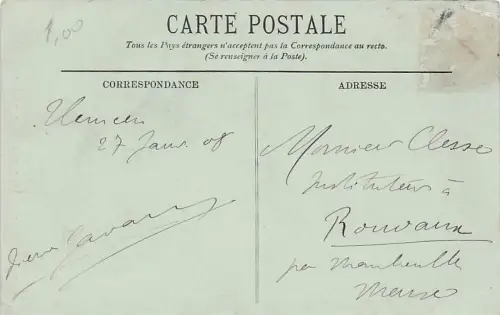 1,00
CARTE POSTALE
Tous les Pays étrangers n'acceptent pas la Correspondance au recto.
(Se renseigner à la Poste).
CORRESPONDANCE
ADRESSE
Tlemcen
27 Janv 08
Monsieur Clesse
Instituteur à
Rouvaux
par
Meuse